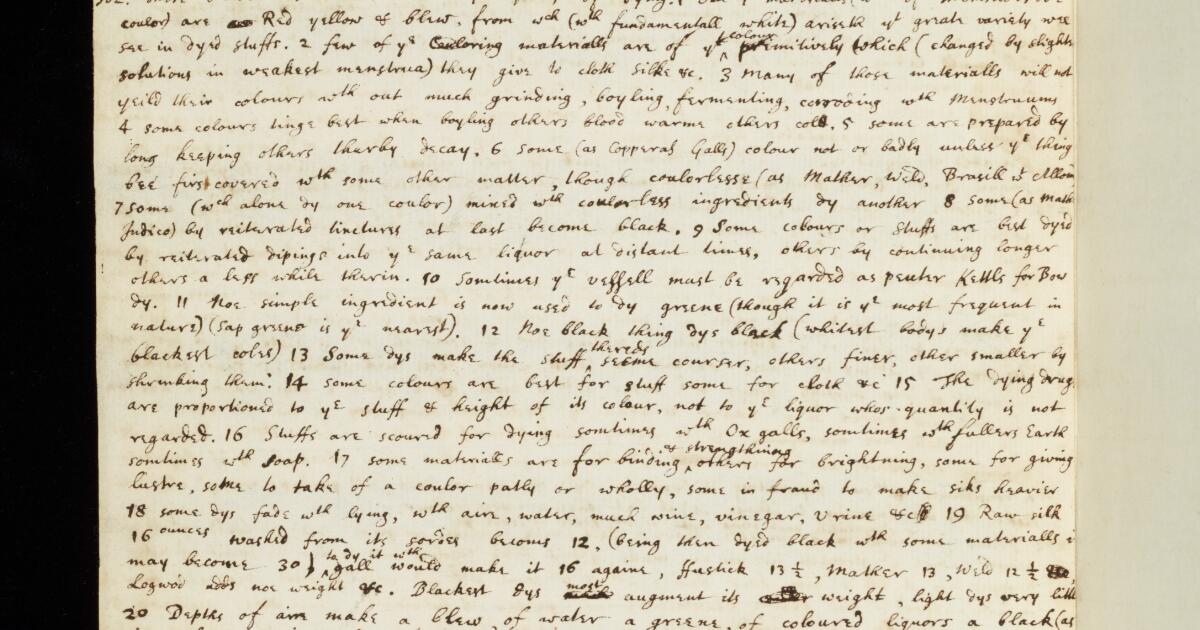 coulor) are Red yellow & blew, from wch (wth fundamentall white) ariseth yt greate variety wee
see in dyed stuffs. 2 few of ye Couloring materialls are of yt colour premitively which (changed by slightest
solutions in weakest menstrua) they give to cloth silke &c. 3 Many of those materialls will not
yeild their colours wth out much grinding, boyling, fermenting, corroding wth Menstruums
4 some colours tinge best when boyling others blood warme others cold. 5 some are prepared by
long keeping others thereby decay. 6 Some (as Copperas Galls) colour not or badly unless ye thing
bee first covered wth some other matter, though coulorlesse (as Mather, Weld, Brasill wth Allom
7 Some (wch alone dy one coulor) mixed wth coulorless ingredients dy another 8 some (as Math
Indico) by reiterated tinctures at last become black. 9 Some colours or stuffs are best dyed
by reiterated dipings into ye same liquor at distant times, others by continuing longer
others a less while therin. 10 Somtimes ye vessell must be regarded as pewter Kettle for Bow
dy. 11 Noe simple ingredient is now used to dy greene (though it is ye most frequent in
nature) (sap greene is ye nearest). 12 Noe black thing dys black (whitest bodys make ye
blackest coles) 13 Some dys make the stuff, thereds seeme courser, others finer, other smaller by
shrinking them: 14 some colours are best for stuff some for cloth &c 15 The dying drugs
are proportioned to ye stuff & height of its colour, not to ye liquor whos quantity is not
regarded. 16 Stuffs are scoured for dying somtimes wth Ox galls, somtimes wth fullers Earth
somtimes wth soap. 17 some materialls are for binding & strengthning others for brightning, some for giving
lustre, some to take of a coulor patly or wholly, some in fraud to make silks heavier
18 some dys fade wth lying, wth aire, water, much wine, vinegar, Urine &c 19 Raw silk
16 ounces washed from its sordes becoms 12, (being then dyed black wth some materialls i
may become 30) to dy it wth gall would make it 16 againe, ffustick 13 1/2, Mather 13, Weld 12 1/2
Logwod adds noe weight &c. Blackest dys most augment its weight, light dys very litt
20 Depths of aire make a blew, of water a greene, of coloured liquors a black (as